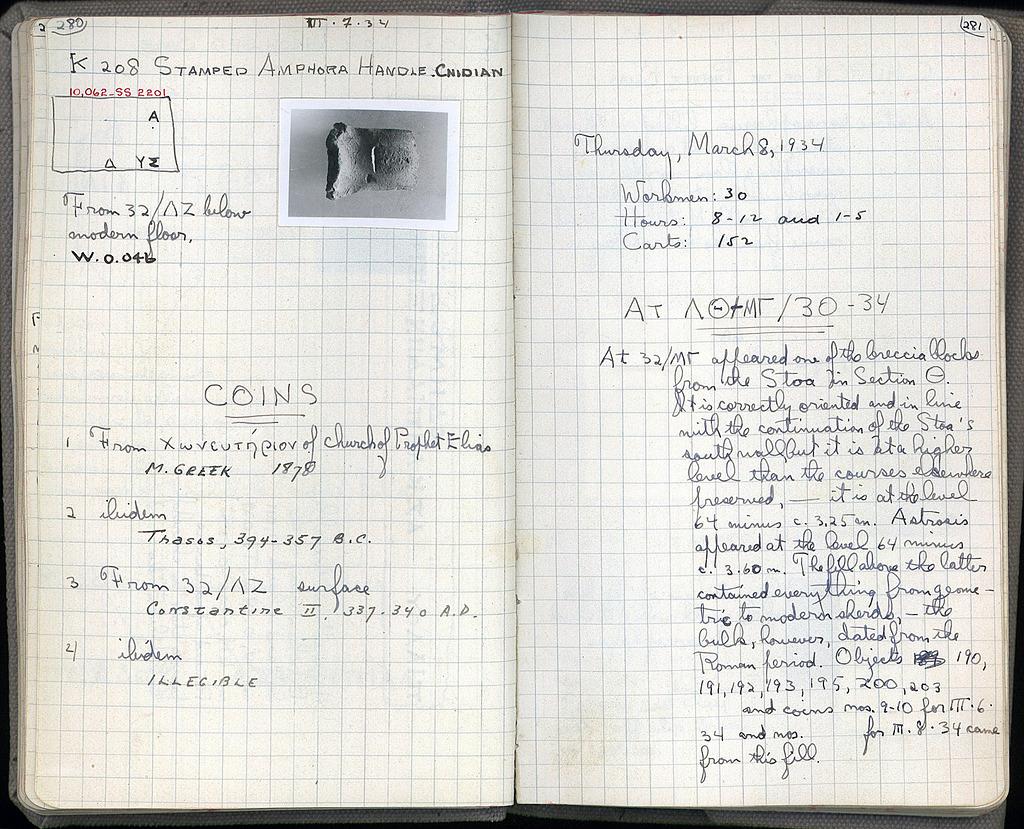 280
III · 7 · 34
K 208 STAMPED AMPHORA HANDLE. CNIDIAN
10,062-SS 2201
A
Δ ΥΣ
From 32/ΛΖ below
modern floor.
W. 0.046
COINS
1 From χωνευτήριον of church of Prophet Elias
M. GREEK 1878
2 ibidem
Thasos, 394-357 B.C.
3 From 32/ΛΖ surface
Constantine II, 337-340 A.D.
4 ibidem
ILLEGIBLE
281
Thursday, March 8, 1934
Workmen: 30
Hours: 8-12 and 1-5
Carts: 152
AT ΛΘ+ΜΓ/30-34
At 32/ΜΓ appeared one of the breccia blocks
from the Stoa in Section Θ.
It is correctly oriented and in line
with the continuation of the Stoa's
south wall, but it is at a higher
level than the courses elsewhere
preserved, — it is at the level
64 minus c. 3.25 m. A strosis
appeared at the level 64 minus
c. 3.60 m. The fill above the latter
contained everything from geome-
tric to modern sherds, — the
bulk, however, dated from the
Roman period. Objects 190,
191, 192, 193, 195, 200, 203
and coins nos. 9-10 for III · 6 ·
34 and nos. for III · 8 · 34 came
from this fill.